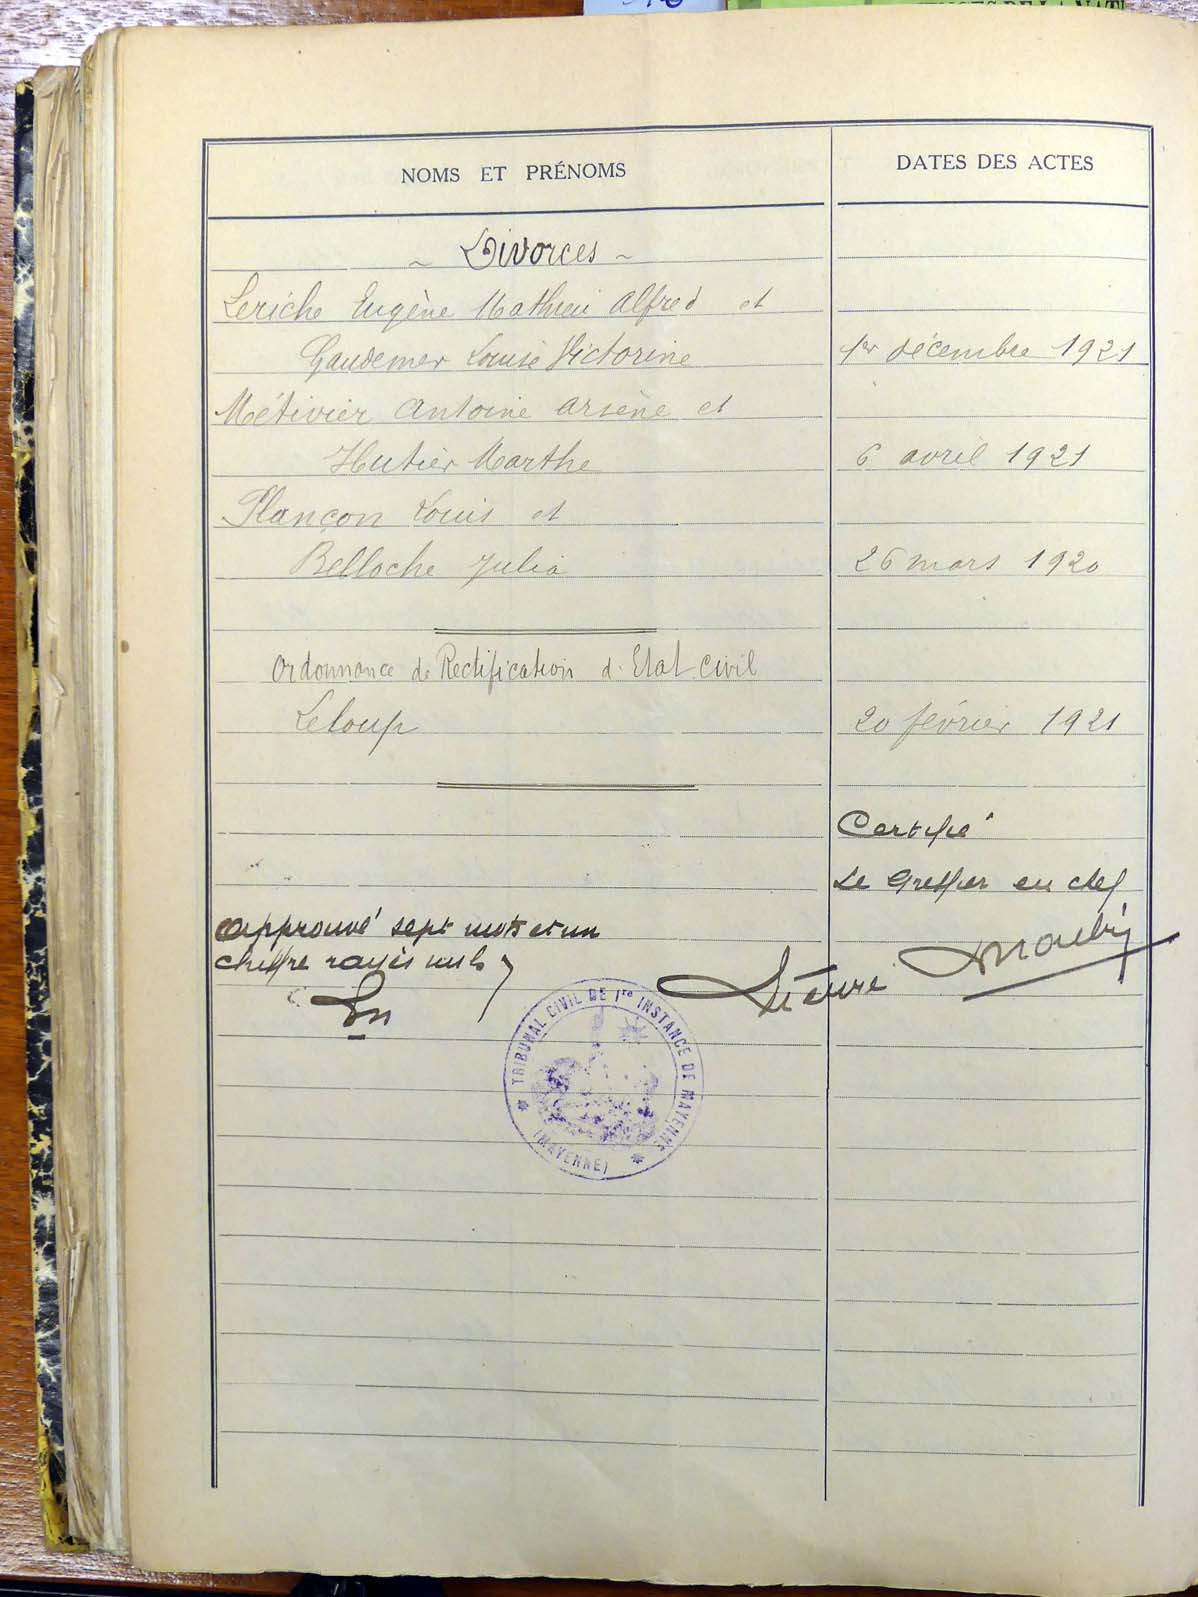 NOMS ET PRÉNOMS
DATES DES ACTES
~ Divorces ~
Leriche Eugène Mathieu Alfred et
Gaudemer Louise Victorine 1er décembre 1921
Métivier Antoine Arsène et
Hutier Marthe 6 avril 1921
Plançon Louis et
Belloche Julia 26 mars 1920
Ordonnance de Rectification d'Etat civil
Leloup 20 février 1921
Certifié
Le Greffier en chef
approuvé sept mots et un
chiffre rayés nuls
TRIBUNAL CIVIL DE 1re INSTANCE DE MAYENNE
(MAYENNE)